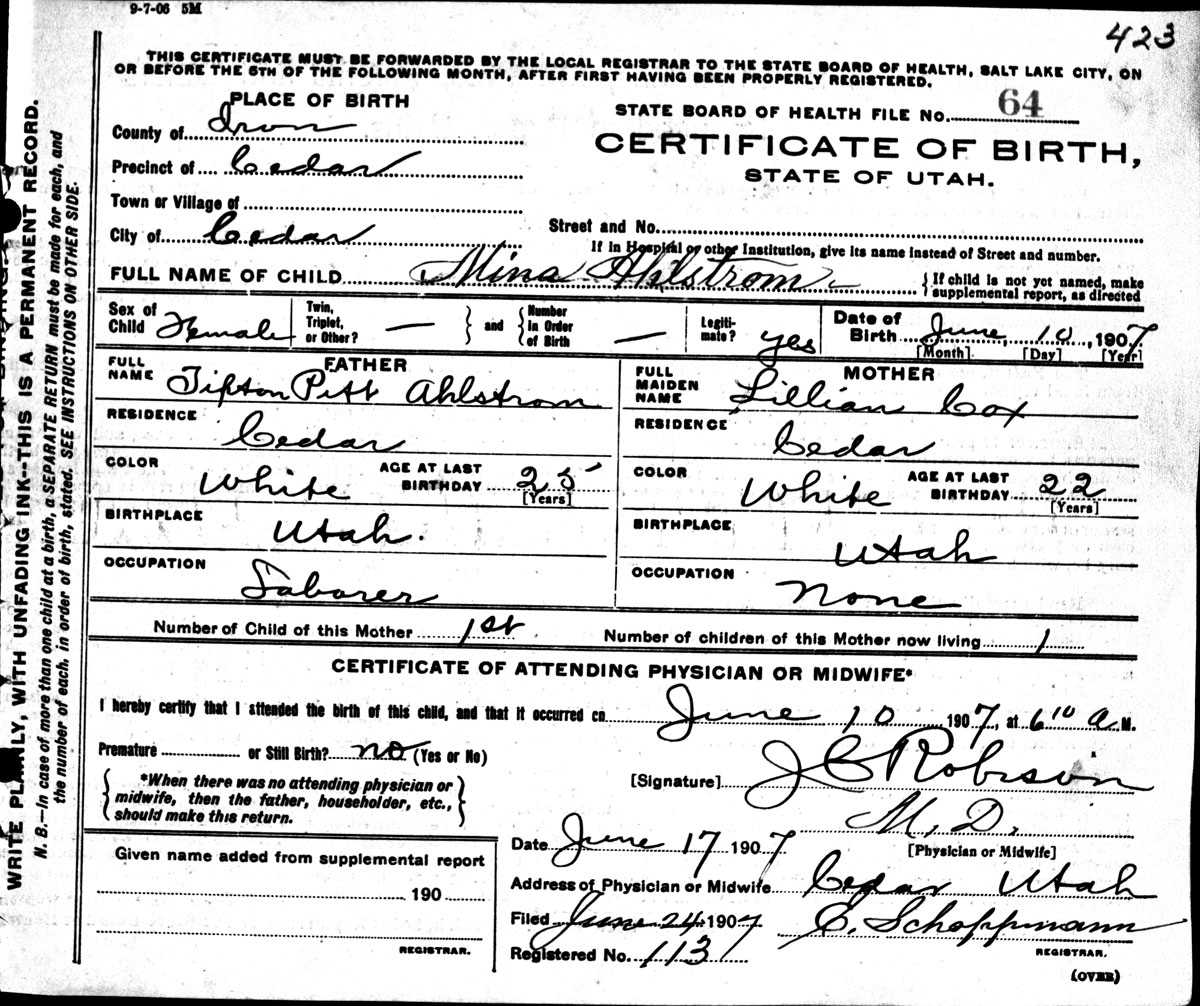 9-7-06 5M
423
THIS CERTIFICATE MUST BE FORWARDED BY THE LOCAL REGISTRAR TO THE STATE BOARD OF HEALTH, SALT LAKE CITY, ON
OR BEFORE THE 5TH OF THE FOLLOWING MONTH, AFTER FIRST HAVING BEEN PROPERLY REGISTERED.
PLACE OF BIRTH
County of Iron
Precinct of Cedar
Town or Village of
City of Cedar
STATE BOARD OF HEALTH FILE NO. 64
CERTIFICATE OF BIRTH,
STATE OF UTAH.
Street and No.
If in Hospital or other Institution, give its name instead of Street and number.
FULL NAME OF CHILD Mina Ahlstrom
{ If child is not yet named, make
supplemental report, as directed
Sex of Child Female
Twin, Triplet, or Other? — } and { Number in Order of Birth —
Legiti-mate? yes
Date of Birth June 10, 1907
[Month] [Day] [Year]
FATHER
FULL NAME Tipton Pitt Ahlstrom
RESIDENCE Cedar
COLOR White AGE AT LAST BIRTHDAY 25 [Years]
BIRTHPLACE Utah.
OCCUPATION Laborer
MOTHER
FULL MAIDEN NAME Lillian Cox
RESIDENCE Cedar
COLOR White AGE AT LAST BIRTHDAY 22 [Years]
BIRTHPLACE Utah
OCCUPATION None
Number of Child of this Mother 1st Number of children of this Mother now living 1
CERTIFICATE OF ATTENDING PHYSICIAN OR MIDWIFE*
I hereby certify that I attended the birth of this child, and that it occurred on June 10 1907, at 6 10 a.M.
Premature or Still Birth? no (Yes or No)
{ *When there was no attending physician or
midwife, then the father, householder, etc.,
should make this return. }
[Signature] J C Robison
M. D.
[Physician or Midwife]
Date June 17 1907
Address of Physician or Midwife Cedar Utah
Filed June 24 1907 E. Schoppmann
REGISTRAR.
Registered No. 113
(OVER)
Given name added from supplemental report
190
REGISTRAR.
WRITE PLAINLY, WITH UNFADING INK--THIS IS A PERMANENT RECORD.
N. B.—In case of more than one child at a birth, a SEPARATE RETURN must be made for each, and
the number of each, in order of birth, stated. SEE INSTRUCTIONS ON OTHER SIDE.